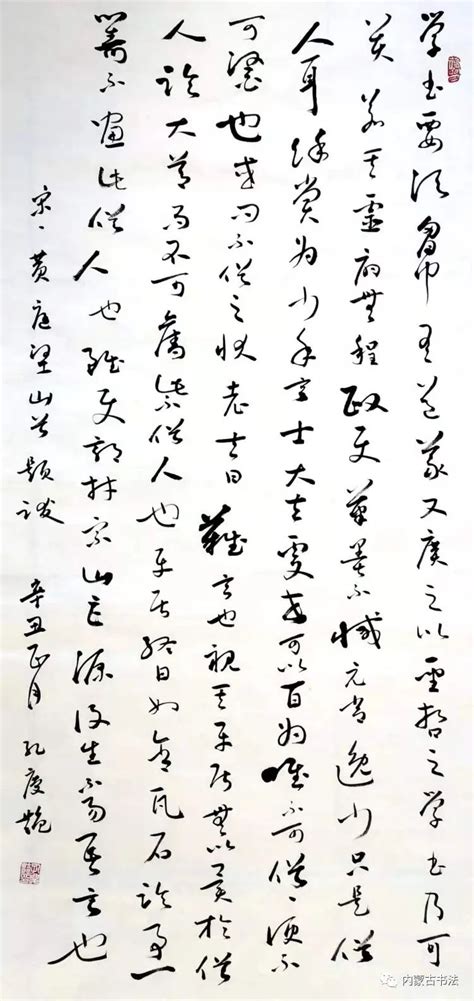 学书要须胸中有道义又广之以圣哲之学书乃可
贵若其灵府無程政使笔墨不减元常逸少只是俗
人耳余尝为少年言士大夫处世可以百为唯不可俗俗便不
可医也或问不俗之状老夫曰難言也视其平居無以异於俗
人临大节而不可夺此不俗人也平居终日如含瓦石临事一
筹不画此俗人也雖使郭林宗山巨源復生不易吾言也
宋、黄庭坚山谷题跋 辛丑正月 孔庆艳
内蒙古书法